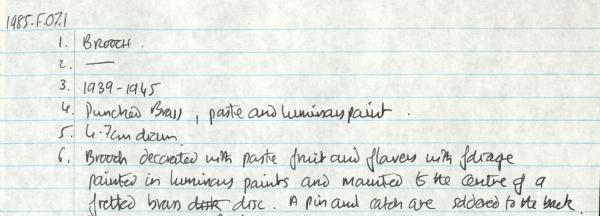 1985.F.07.1
1. BROOCH.
2. —
3. 1939-1945
4. Punched Brass, paste and luminous paint.
5. 4.7cm diam
6. Brooch decorated with paste fruit and flowers with foliage
painted in luminous paints and mounted to the centre of a
fretted brass disk disc. A pin and catch are soldered to the back.